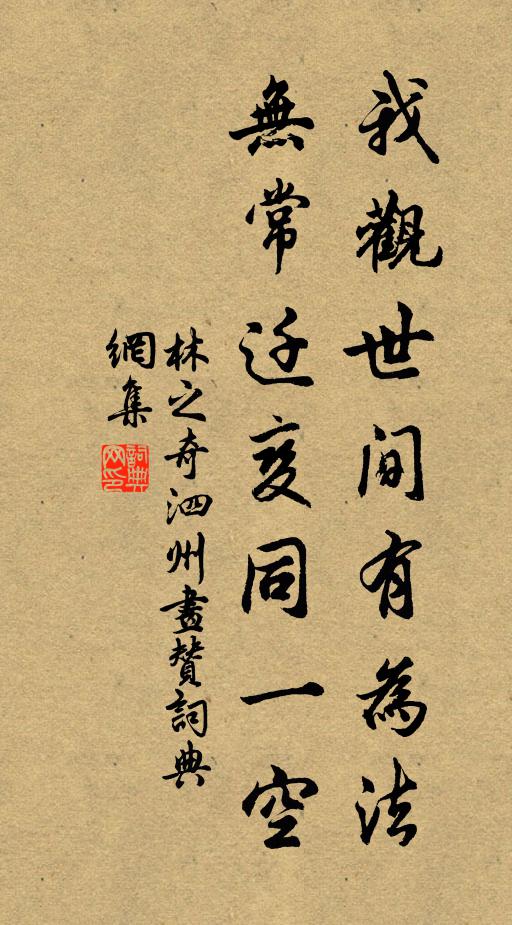 我觀世间有為法
無常迁变同一空
林之奇泗州畫贊詞典
網集
詞典
网印